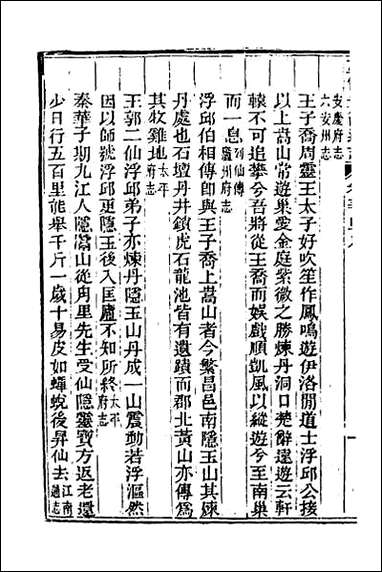 安慶府志
六安州志
王子喬周靈王太子好吹笙作鳳鳴遊伊洛間道士浮邱公接
以上嵩山常遊巢愛金庭紫微之勝煉丹洞口楚辭遠遊云軒
轅不可追攀兮吾將從王喬而娛戲順凱風以縱遊兮至南巢
而一息列仙傳廬州府志
浮邱伯相傳卽與王子喬上嵩山者今繁昌邑南隱玉山其煉
丹處也石壇丹井鎖虎石龍池皆有遺蹟而郡北黃山亦傳爲
其牧雞地太平府志
王郭二仙浮邱弟子亦煉丹隱玉山丹成一山震動若浮漚然
因以師號浮邱更隱王後入匡廬不知所終太平府志
秦華子期九江人隱嵩山從甪里先生受仙隱靈寶方返老還
少日行五百里能舉千斤一歲十易皮如蟬蛻後昇仙去江南通志